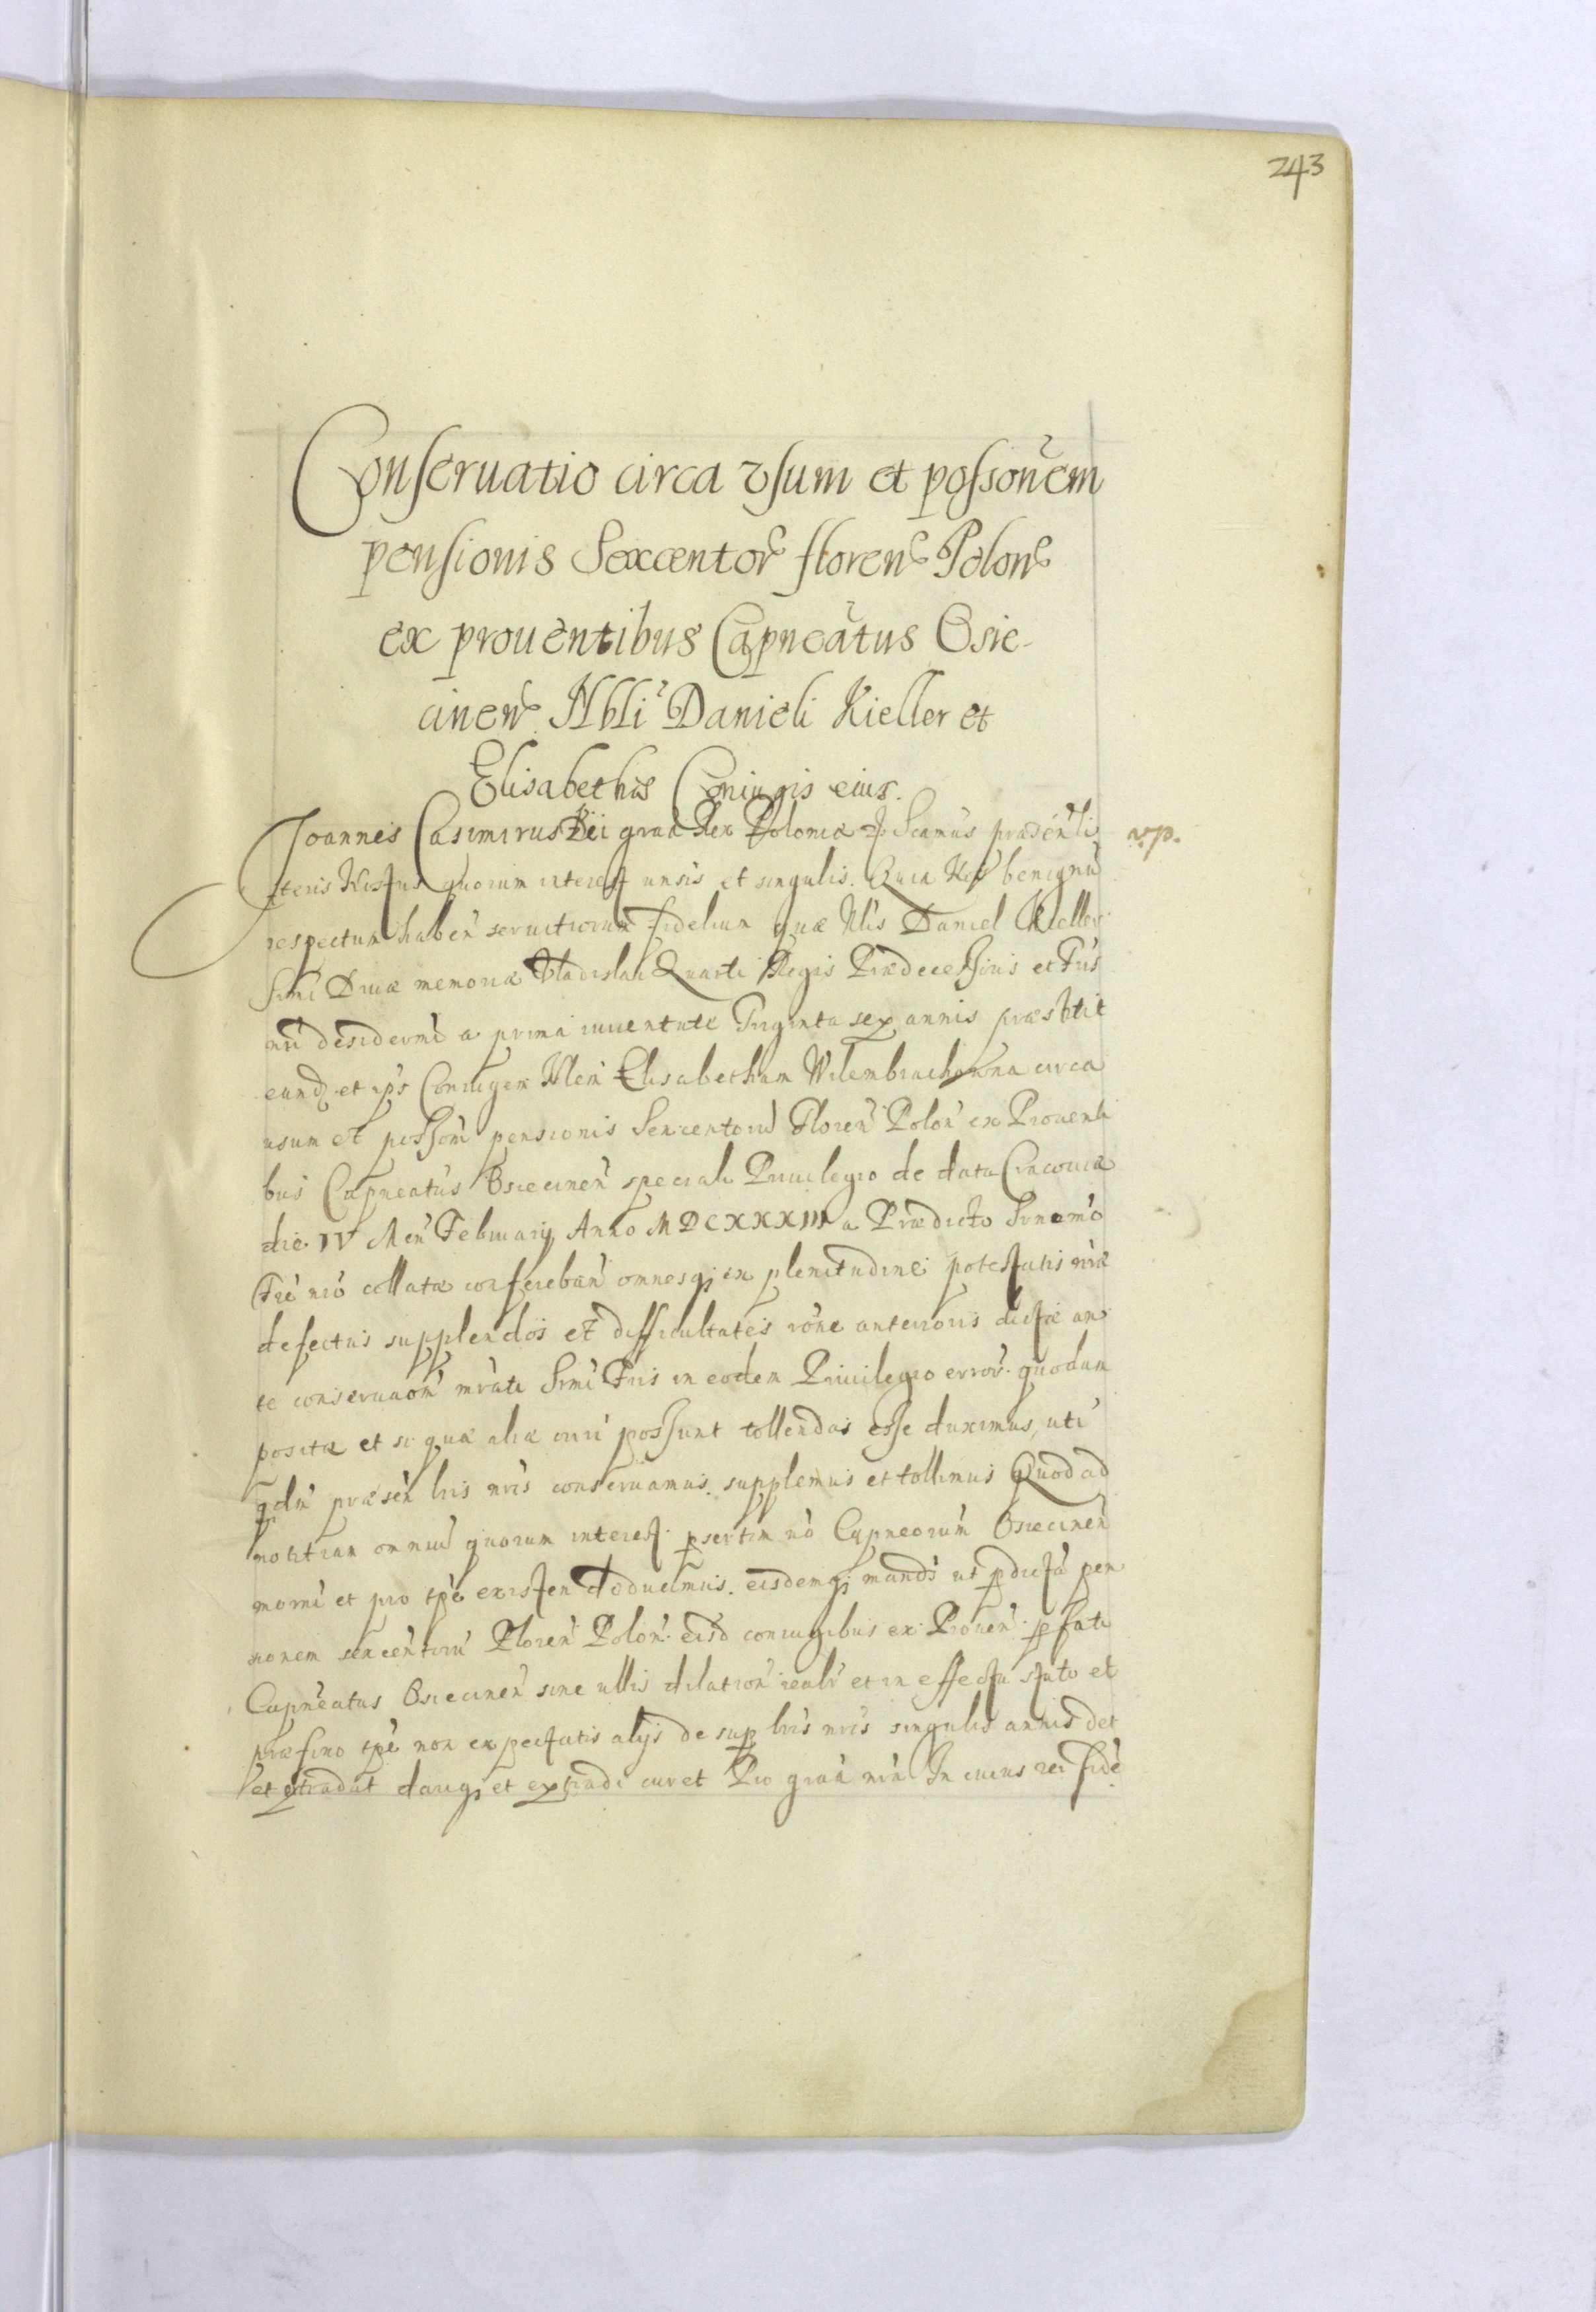 243
Conseruatio circa vsum et possonem
pensionis Sexcentor floren Polon
ex prouentibus Capneatus Osie-
cinen Nbli Danieli Kieller et
Elisabethæ Coniugis eius.
Joannes Casimirus Dei graa Rex Poloniæ Scimus præsenti
vp.
teris Nostris quorum interest unsis et singulis. Quia Nos benignu
respectum haben seruitiorum fidelium quæ Nlis Daniel Kieller
Srmi Diuæ memoriæ Vladislai Quarti Regis Prædecessoris et Fris
nri desidermi a prima iuuentute Triginta sex annis præstitit
eundq et ips Coniugem Nlem Elisabetham Wilembrachowna circa
usum et possom pensionis Sexcentoru Floren Polon ex Prouenti
bus Capneatus Osiecinen speciali Priuilegio de data Cracouiæ
die IV Men Februarij Anno MDCXXXIII a Prædicto Srnomo
Fre nro collatæ conferebam omnesq ex plenitudine potestatis nræ
defectus supplendos et difficultates rone anterioris dictæ an
te conseruaom mrati Srmi Fris in eodem Priuilegio error quodam
positæ et si quæ aliæ possunt tollendas esse duximus, uti
qdm præsen lris nris conseruamus supplemus et tollimus Quod ad
notitiam omniu quorum interest psertim uo Capneorum Osiecinen
morni et pro tpe existen deducimus. eisdemq mando ut pdicta pen
sionem sexcentoru Floren Polon eisd coniugibus ex Prouen pfati
Capneatus Osiecinen sine ullis dilation realr et in effectu stato et
præfixo tpe non expectatis alijs de sup lris nris singulis annis det
et extradat dariq et extradi curet Pro graa nra In cuius rei fide